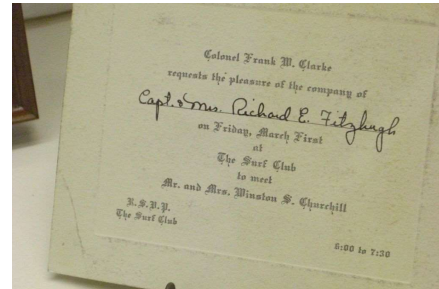 Colonel Frank W. Clarke
requests the pleasure of the company of
Capt. & Mrs. Richard E. Fitzhugh
on Friday, March First
at
The Surf Club
to meet
Mr. and Mrs. Winston S. Churchill
R.S.V.P.
The Surf Club
6:00 to 7:30